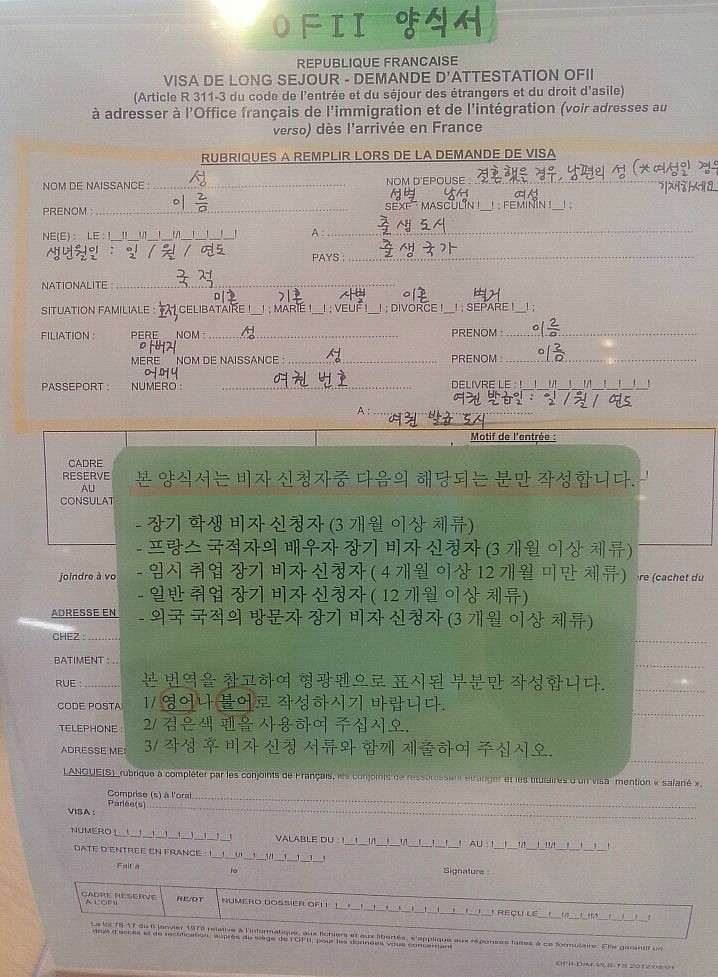 OFII 양식서
REPUBLIQUE FRANCAISE
VISA DE LONG SEJOUR - DEMANDE D'ATTESTATION OFII
(Article R 311-3 du code de l'entrée et du séjour des étrangers et du droit d'asile)
à adresser à l'Office français de l'immigration et de l'intégration (voir adresses au
verso) dès l'arrivée en France
RUBRIQUES A REMPLIR LORS DE LA DEMANDE DE VISA
NOM DE NAISSANCE : 성 NOM D'EPOUSE : 결혼했을 경우, 남편의 성 (*여성일 경우
기재하세요
성별 남성 여성
PRENOM : 이름 SEXE MASCULIN !__! ; FEMININ !__! ;
NE(E) : LE : !__!__!/!__!__!/!__!__!__!__! A : 출생도시
생년월일 : 일 / 월 / 연도 PAYS : 출생국가
NATIONALITE : 국적
미혼 기혼 사별 이혼 별거
SITUATION FAMILIALE : 호적 CELIBATAIRE !__! ; MARIE !__! ; VEUF !__! ; DIVORCE !__! ; SEPARE !__! ;
FILIATION : PERE NOM : 성 PRENOM : 이름
아버지
MERE NOM DE NAISSANCE : 성 PRENOM : 이름
어머니
PASSEPORT : NUMERO : 여권 번호 DELIVRE LE : !__!__!/!__!__!/!__!__!__!__!
여권 발급일 : 일 / 월 / 연도
A : 여권 발급 도시
Motif de l'entrée :
CADRE
RESERVE
AU
CONSULAT
본 양식서는 비자 신청자중 다음의 해당되는 분만 작성합니다.
- 장기 학생 비자 신청자 (3 개월 이상 체류)
- 프랑스 국적자의 배우자 장기 비자 신청자 (3 개월 이상 체류)
- 임시 취업 장기 비자 신청자 ( 4 개월 이상 12 개월 미만 체류)
- 일반 취업 장기 비자 신청자 ( 12 개월 이상 체류)
- 외국 국적의 방문자 장기 비자 신청자 (3 개월 이상 체류)
본 번역을 참고하여 형광펜으로 표시된 부분만 작성합니다.
1/ 영어나 불어로 작성하시기 바랍니다.
2/ 검은색 펜을 사용하여 주십시오.
3/ 작성 후 비자 신청 서류와 함께 제출하여 주십시오.
joindre à vo (cachet du
ADRESSE EN
CHEZ :
BATIMENT :
RUE :
CODE POSTA
TELEPHONE :
ADRESSE MES
LANGUE(S) rubrique à compléter par les conjoints de Français, les conjoints de ressortissant étranger et les titulaires d'un visa mention « salarié »,
Comprise (s) à l'oral
Parlée(s)
VISA :
NUMERO !__!__!__!__!__!__!__!__!__! VALABLE DU : !__!__!/!__!__!/!__!__!__!__! AU : !__!__!/!__!__!/!__!__!__!__!
DATE D'ENTREE EN FRANCE : !__!__!/!__!__!/!__!__!__!__!
Fait à le Signature :
CADRE RESERVE
A L'OFII
RE/DT
NUMERO DOSSIER OFII !__!__!__!__!__!__!__!__!__!__! REÇU LE !__!__!/!__!__!/!__!__!__!__!
La loi 78-17 du 6 janvier 1978 relative à l'informatique, aux fichiers et aux libertés, s'applique aux réponses faites à ce formulaire. Elle garantit un
droit d'accès et de rectification, auprès du siège de l'OFII, pour les données vous concernant
OFII-DIM-VLS-TS 2012/08/01